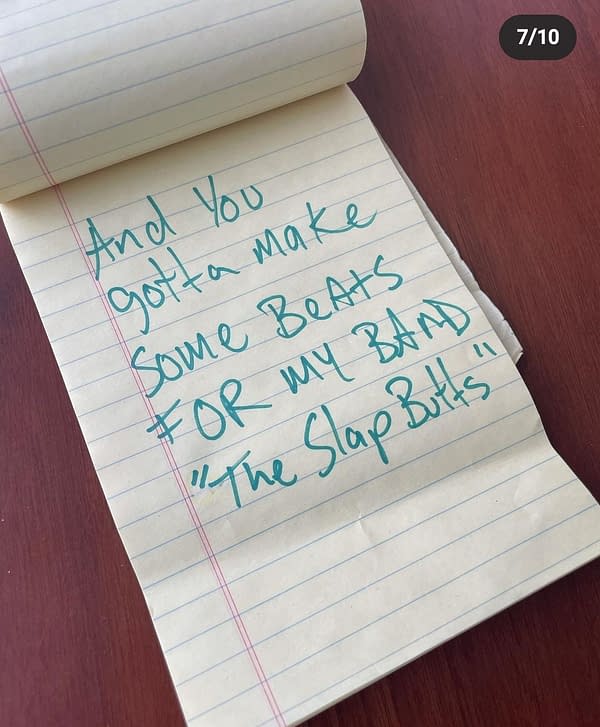 7/10
And You
gotta make
Some BeAts
FOR MY BAND
"The Slap Butts"